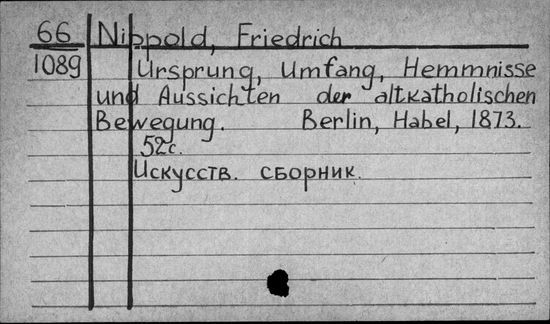 66 Nippold, Friedrich
1089 Ursprung, Umfang, Hemmnisse
und Aussichten der altkatholischen
Bewegung. Berlin, Habel, 1873.
52с.
Искусств. сборник.